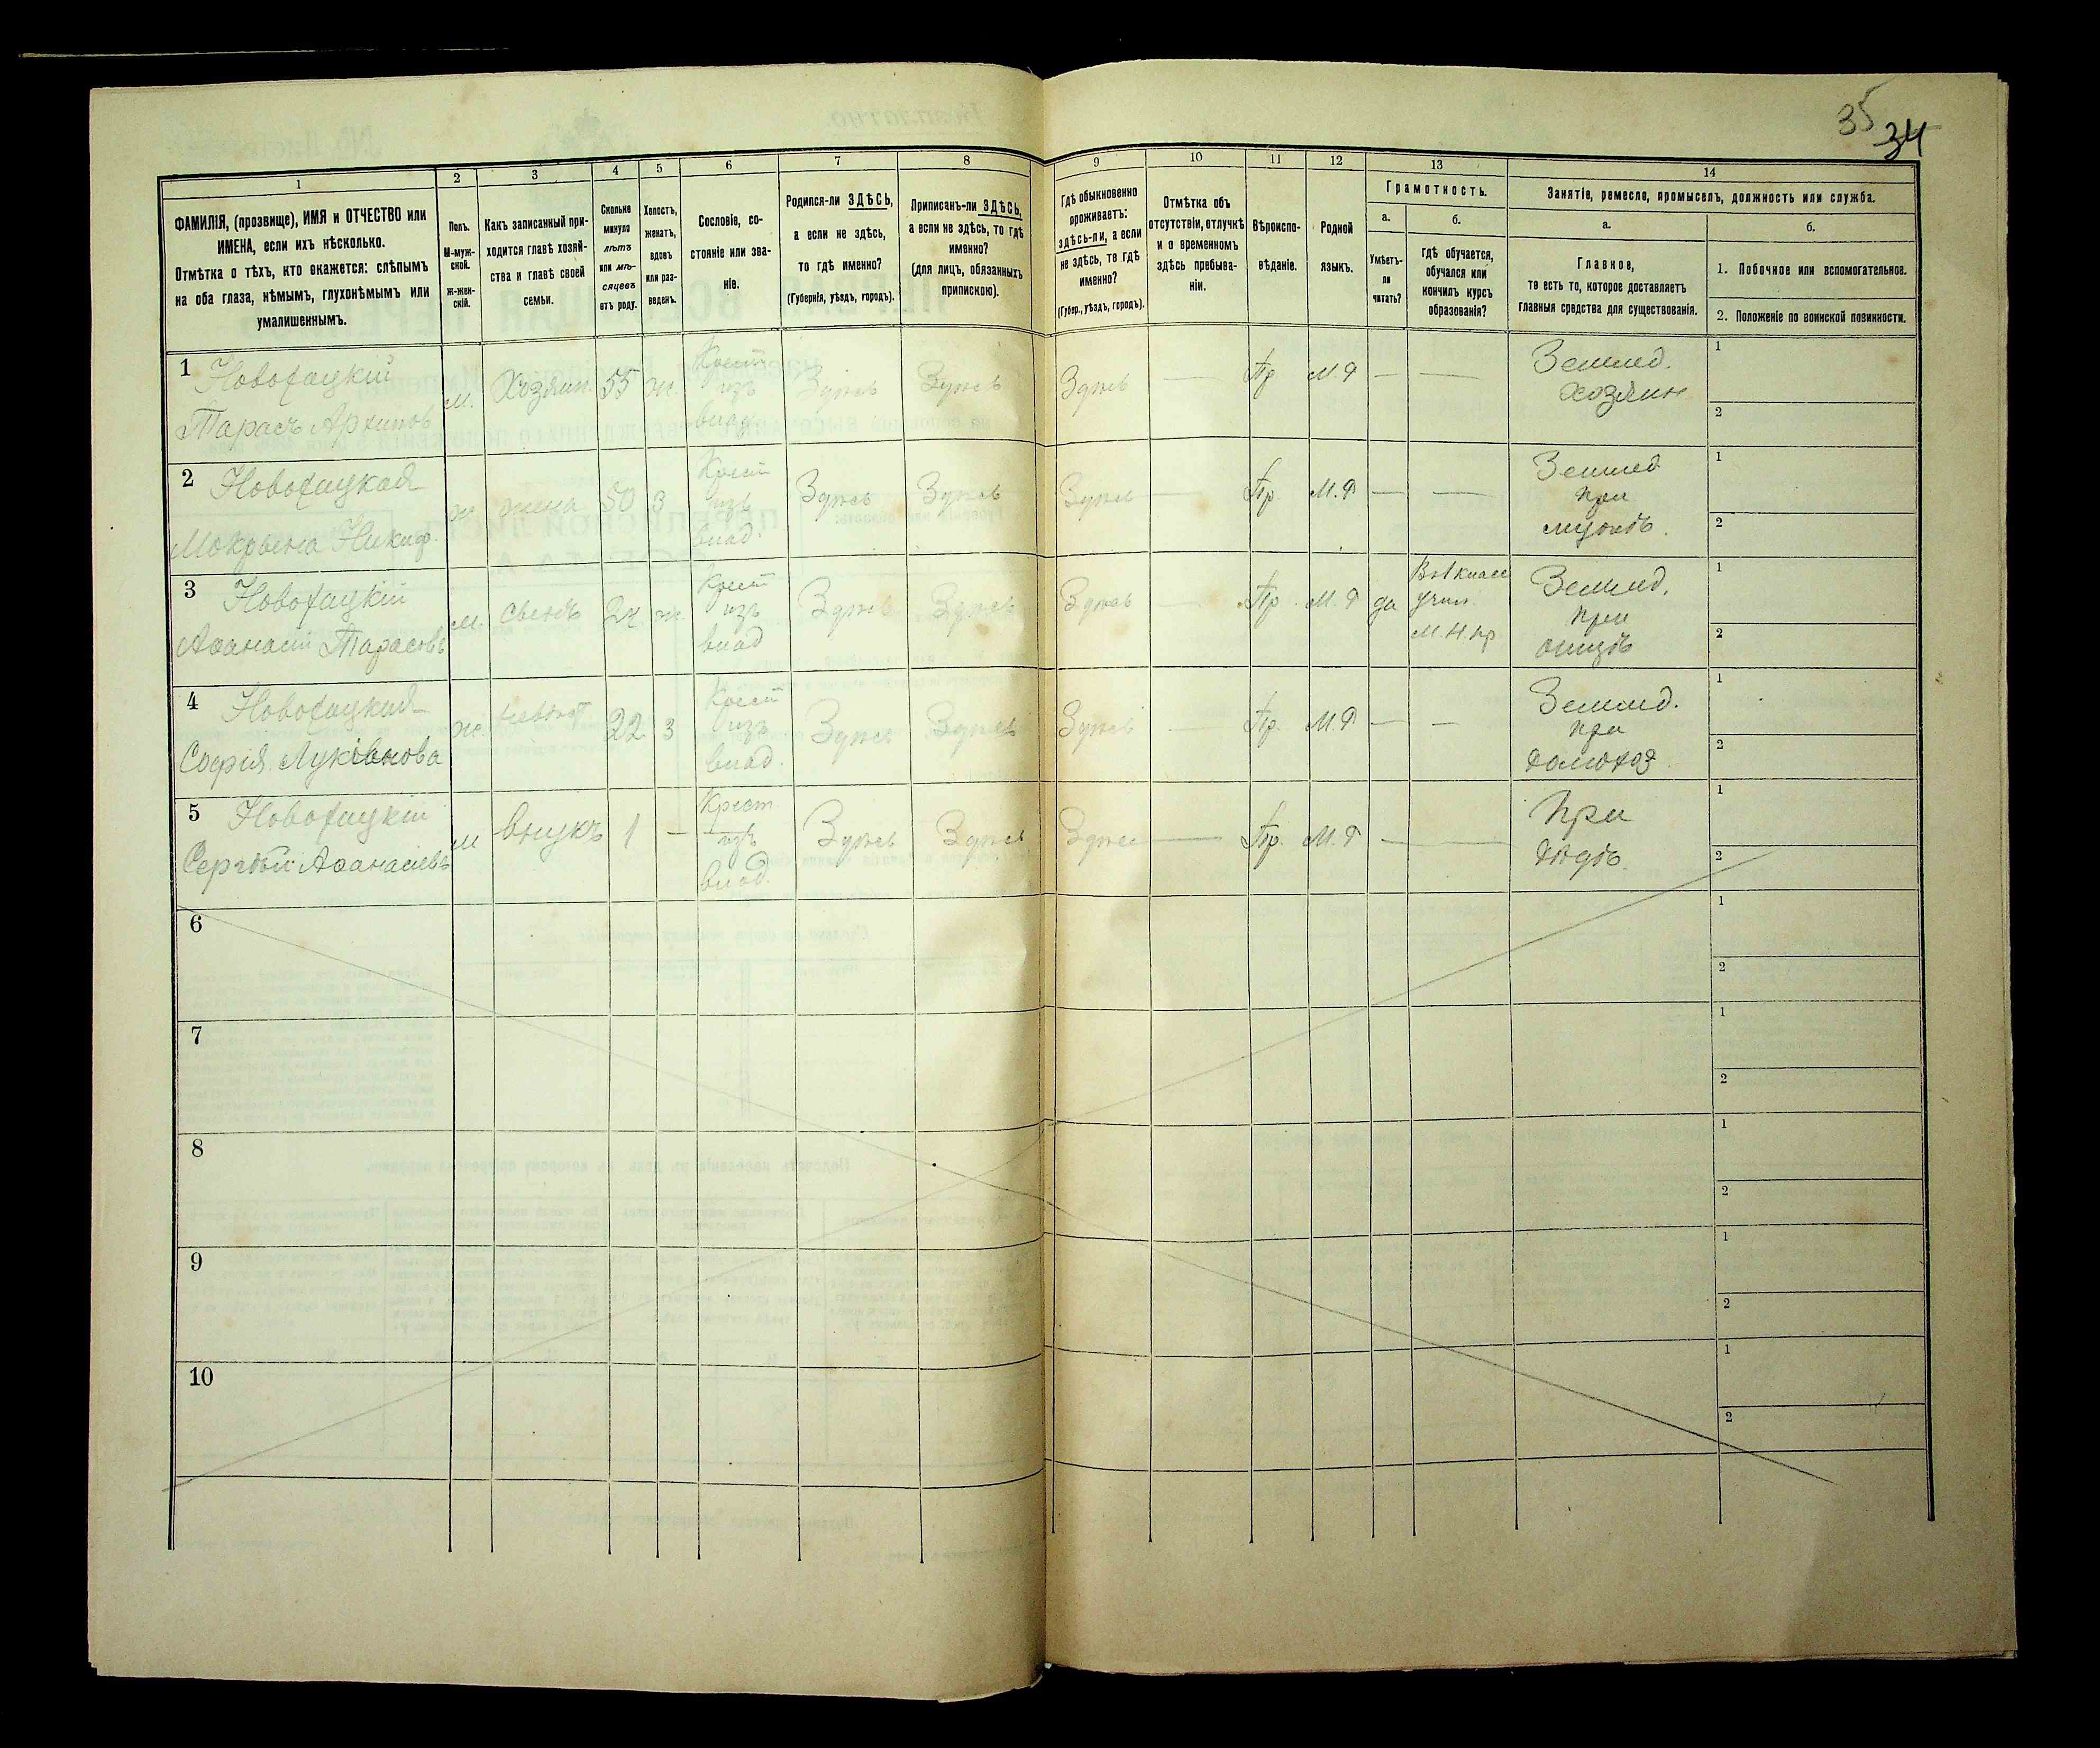 35
34
1
ФАМИЛІЯ, (прозвище), ИМЯ и ОТЧЕСТВО или
ИМЕНА, если ихъ нѣсколько.
Отмѣтка о тѣхъ, кто окажется: слѣпымъ
на оба глаза, нѣмымъ, глухонѣмымъ или
умалишеннымъ.
2
Полъ.
М-муж-
ской.
Ж-жен-
скій.
3
Какъ записанный при-
ходится главѣ хозяй-
ства и главѣ своей
семьи.
4
Сколько
минуло
лѣтъ
или мѣ-
сяцевъ
отъ роду.
5
Холостъ,
женатъ,
вдовъ
или раз-
веденъ.
6
Сословіе, со-
стояніе или зва-
ніе.
7
Родился-ли ЗДѢСЬ,
а если не здѣсь,
то гдѣ именно?
(Губернія, уѣздъ, городъ).
8
Приписанъ-ли ЗДѢСЬ,
а если не здѣсь, то гдѣ
именно?
(для лицъ, обязанныхъ
припискою).
9
Гдѣ обыкновенно
проживаетъ:
здѣсь-ли, а если
не здѣсь, то гдѣ
именно?
(Губер., уѣздъ, городъ).
10
Отмѣтка объ
отсутствіи, отлучкѣ
и о временномъ
здѣсь пребыва-
ніи.
11
Вѣроиспо-
вѣданіе.
12
Родной
языкъ.
13
Грамотность.
а.
Умѣетъ-
ли
читать?
б.
гдѣ обучается,
обучался или
кончилъ курсъ
образованія?
14
Занятіе, ремесло, промыселъ, должность или служба.
а.
Главное,
то есть то, которое доставляетъ
главныя средства для существованія.
б.
1. Побочное или вспомогательное.
2. Положеніе по воинской повинности.
1
Тарасъ Архиповъ
м.
Хозяин.
55
ж.
Крест
изъ
влад
Здѣсь
Здѣсь
Здѣсь
—
Пр
М.Р
—
—
Землед.
хозяин
1
2
2
Мокрына Никиф.
ж
жена
50
з
Крест
изъ
влад.
Здѣсь
Здѣсь
Здѣсь
—
Пр.
М.Р
—
—
Землед
при
мужѣ.
1
2
3
Аѳанасій Тарасовъ
м.
сынъ
ж.
Крест
изъ
влад
Здѣсь
Здѣсь
Здѣсь
—
Пр.
М.Р
да
Въ 1 класс
учил.
М.Н.пр
Землед.
при
отцѣ
1
2
4
Софія
ж.
22
з
Крест
изъ
влад.
Здѣсь
Здѣсь
Здѣсь
—
Пр.
М.Р
—
—
Землед.
при
домохоз
1
2
5
Сергѣй Аѳанасіевъ
м
внукъ
1
—
Крест
изъ
влад.
Здѣсь
Здѣсь
Здѣсь
—
Пр.
М.Р
—
—
При
дѣдѣ.
1
2
6
1
2
7
1
2
8
1
2
9
1
2
10
1
2